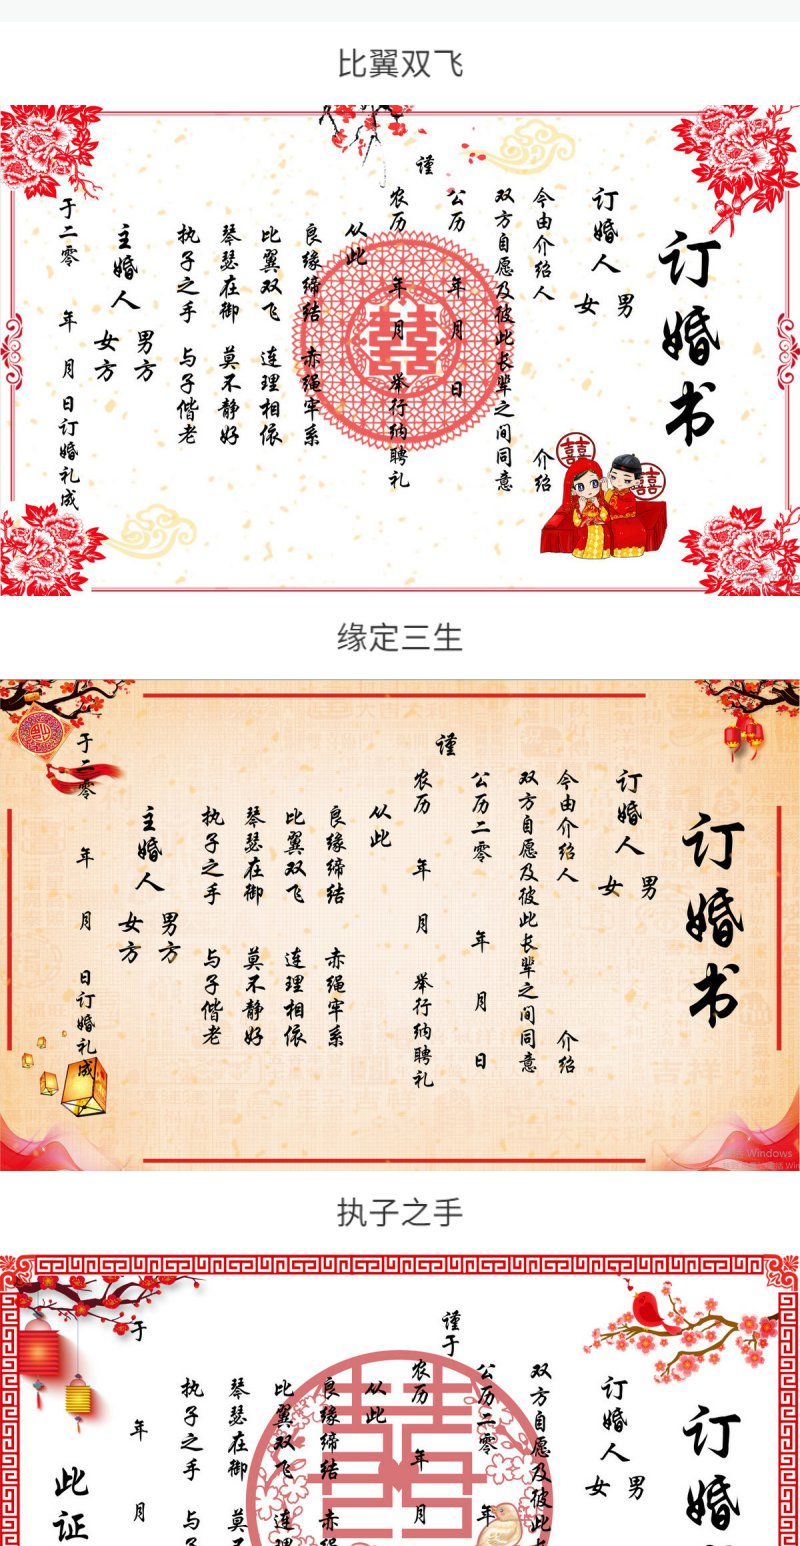 比翼双飞
订婚书
订婚人 男
女
今由介绍人 介绍
双方自愿及彼此长辈之间同意
公历 年 月 日
谨
农历 年 月 举行纳聘礼
从此
良缘缔结 赤绳牢系
比翼双飞 连理相依
琴瑟在御 莫不静好
执子之手 与子偕老
主婚人 男方
女方
于二零 年 月 日订婚礼成
缘定三生
订婚书
订婚人 男
女
今由介绍人 介绍
双方自愿及彼此长辈之间同意
公历二零 年 月 日
谨
农历 年 月 举行纳聘礼
从此
良缘缔结 赤绳牢系
比翼双飞 连理相依
琴瑟在御 莫不静好
执子之手 与子偕老
主婚人 男方
女方
于二零 年 月 日订婚礼成
Windows
执子之手
订婚
订婚人 男
女
双方自愿及彼此
公历二零 年
谨于
农历 年 月
从此
良缘缔结 赤
比翼双飞 连
琴瑟在御 莫
执子之手 与
于 年 月
此证